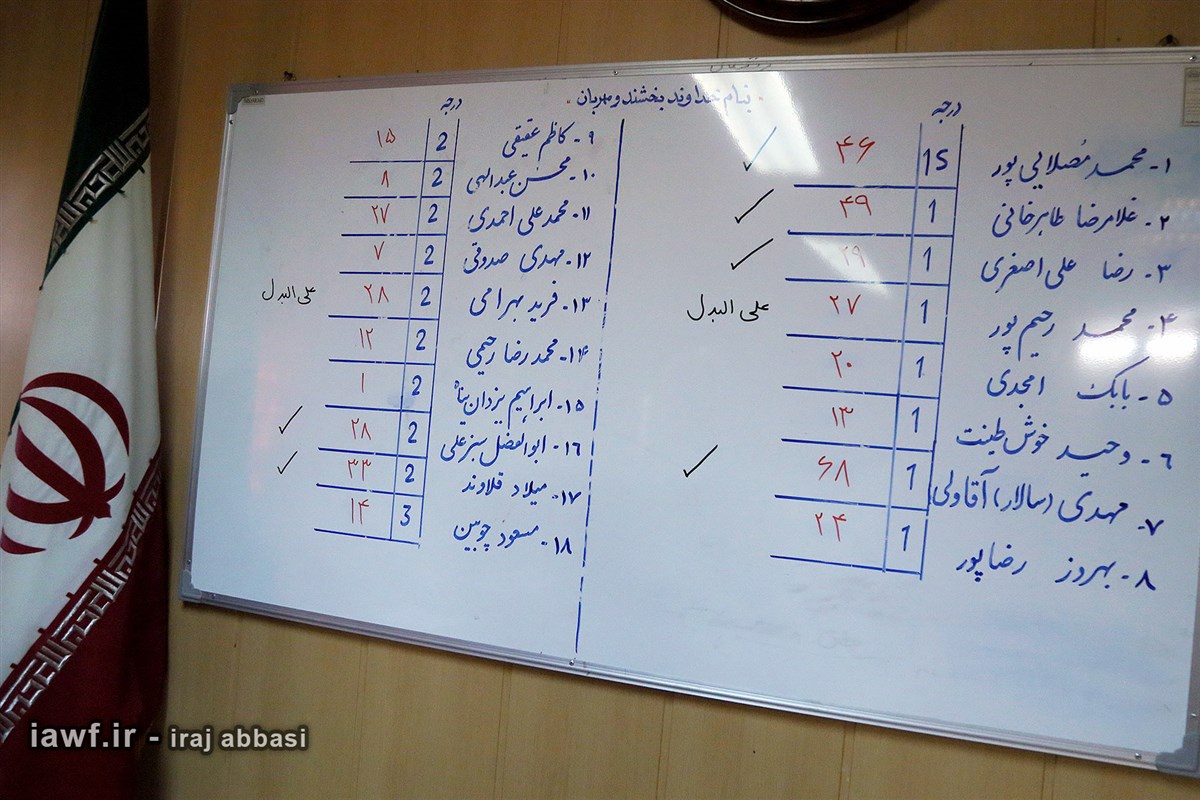 بنام خداوند بخشنده و مهربان
درجه
۱- محمد مُصلایی پور 1S ۴۶ ✓
۲- غلامرضا طاهرخانی 1 ۴۹ ✓
۳- رضا علی اصغری 1 ۲۹ ✓
۴- محمد رحیم پور 1 ۲۷ علی البدل
۵- بابک امجدی 1 ۲۰
۶- وحید خوش طینت 1 ۱۳
۷- مهدی (سالار) آقاولی 1 ۶۸ ✓
۸- بهروز رضاپور 1 ۲۴
درجه
۹- کاظم عقیقی 2 ۱۵
۱۰- محسن عبدالهی 2 ۸
۱۱- محمدعلی احمدی 2 ۲۷
۱۲- مهدی صدوقی 2 ۷
۱۳- فرید بهرامی 2 ۲۸ علی البدل
۱۴- محمدرضا رحیمی 2 ۱۲
۱۵- ابراهیم یزدان پناه 2 ۱
۱۶- ابوالفضل سبزعلی 2 ۲۸ ✓
۱۷- میلاد قلاوند 2 ۳۳ ✓
۱۸- مسعود چوبین 3 ۱۴
iawf.ir - iraj abbasi